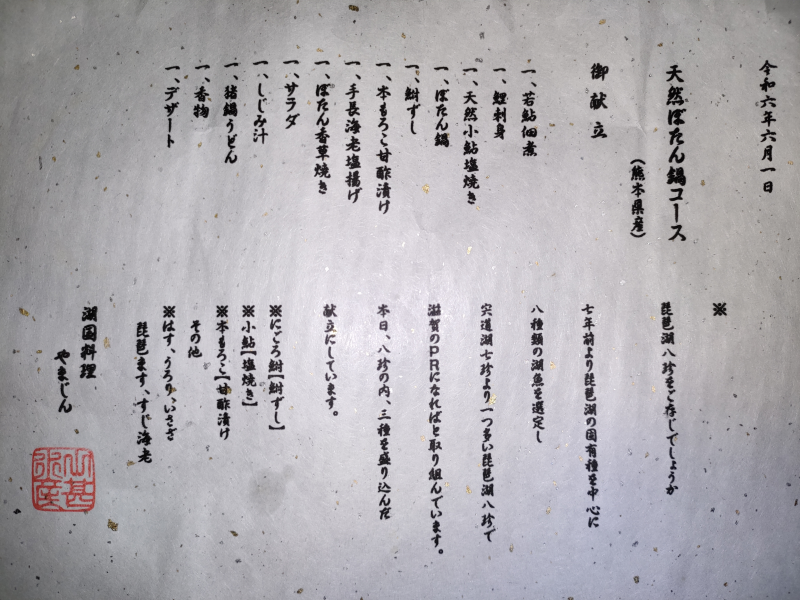 令和六年六月一日
天然ぼたん鍋コース
(熊本県産)
御献立
一、若鮎佃煮
一、鯉刺身
一、天然小鮎塩焼き
一、ぼたん鍋
一、鮒ずし
一、本もろこ甘酢漬け
一、手長海老塩揚げ
一、ぼたん香草焼き
一、サラダ
一、しじみ汁
一、猪鍋うどん
一、香物
一、デザート
※
琵琶湖八珍をご存じでしょうか
七年前より琵琶湖の固有種を中心に
八種類の湖魚を選定し
宍道湖七珍より一つ多い琵琶湖八珍で
滋賀のPRになればと取り組んでいます。
本日、八珍の内、三種を盛り込んだ
献立にしています。
※にごろ鮒【鮒ずし】
※小鮎【塩焼き】
※本もろこ【甘酢漬け
その他
※はす、うろり、いさざ
琵琶ます、すじ海老
湖国料理
やまじん
山甚
水産